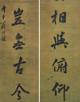 相與俯仰
豈無古今